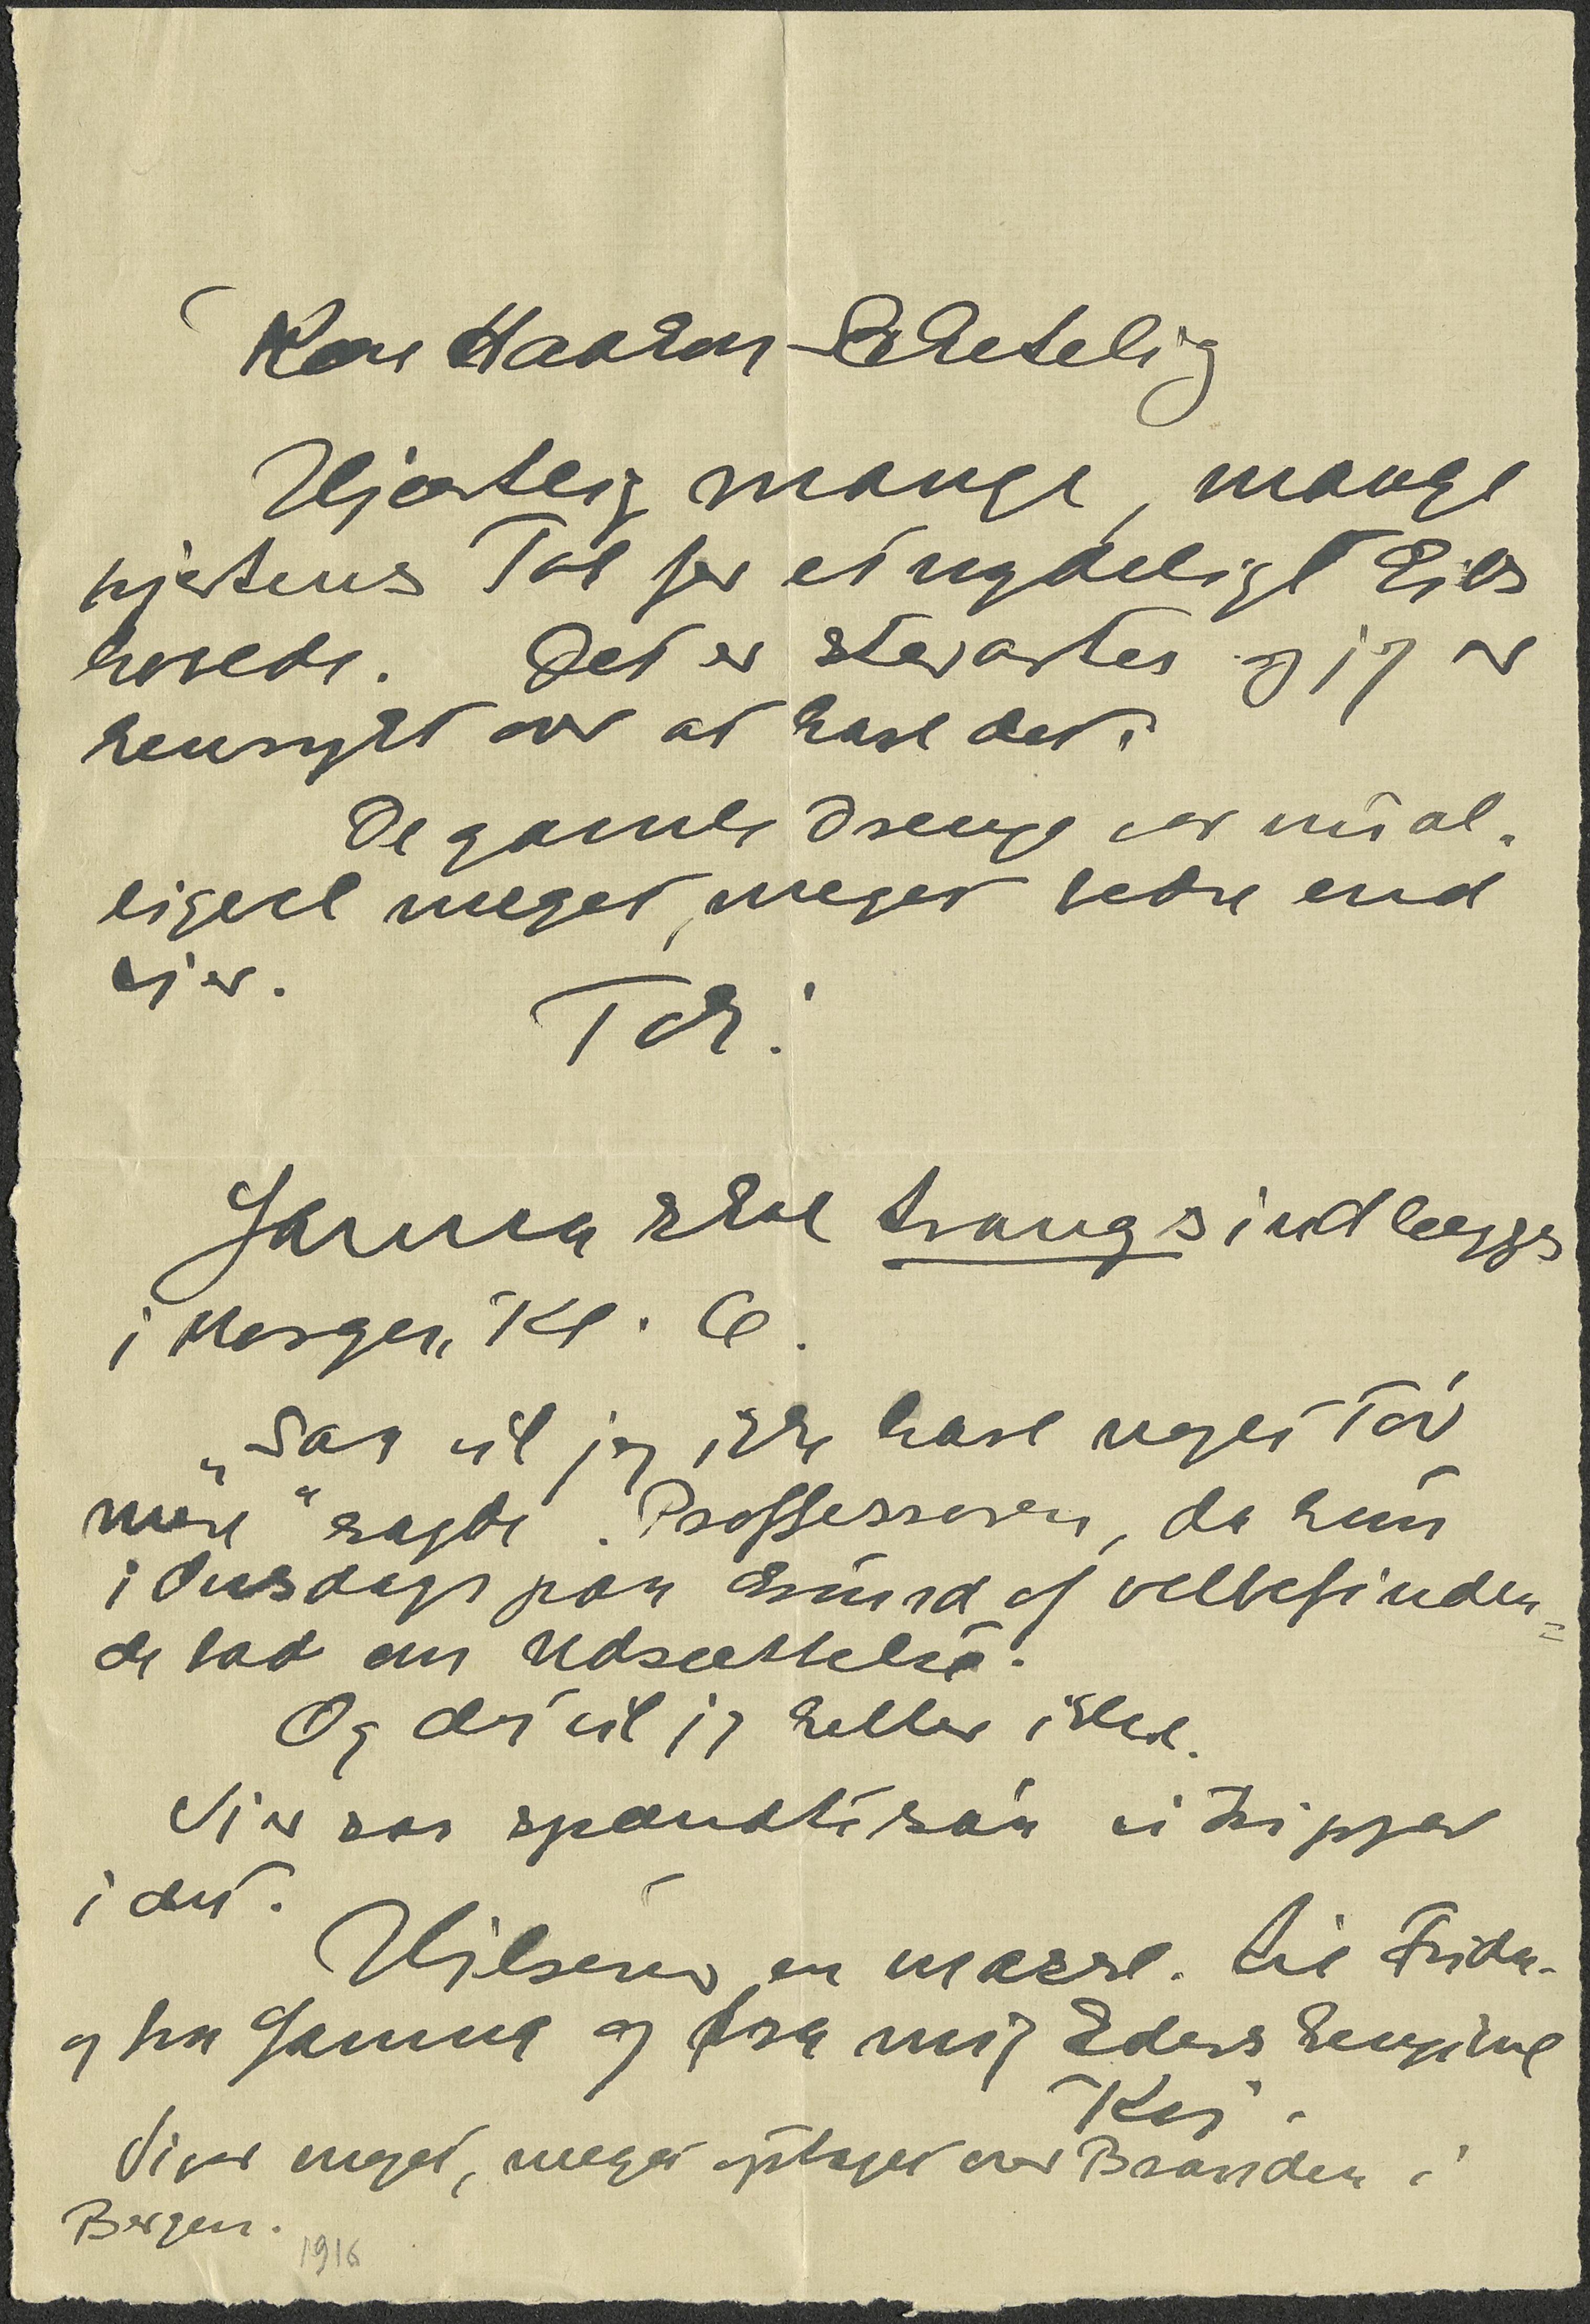 Kære Haakon Schetelig
Hjertelig mange, mange
hjertens Tak for et nydeligt
hovede. Det er storartet og jeg er
henrykt over at have det.
De gamle Drenge var nu al-
ligevel meget, meget bedre end
vi er.
Tak!
Janna skal tvangsindlægges
i Morgen Kl. 6.
"Saa vil jeg ikke have noget Tøv
mere" sagde Proffessoren, da hun
i Onsdags paa Grund af velbefinden=
de bad om Udsættelse.
Og det vil jeg heller ikke.
Vi er saa spændte saa vi hipper
i det.
Hilsener en masse til Frida
og fra Janna og fra mig Eders hengivne
Kai.
Vi er meget, meget optaget over Branden i
Bergen.
1916